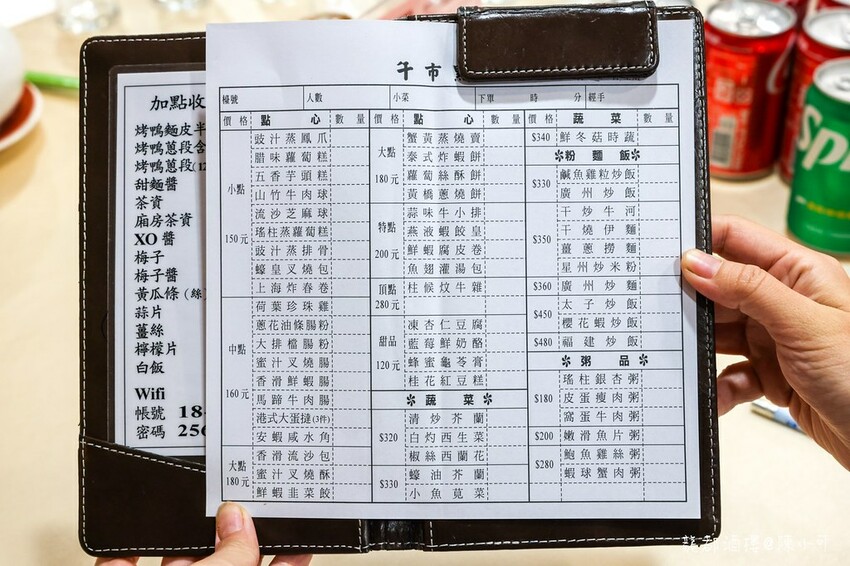 加點收
烤鴨麵皮半
烤鴨蔥段含
烤鴨蔥段(12
甜麵醬
茶資
廂房茶資
XO 醬
梅子
梅子醬
黃瓜條(絲)
蒜片
薑絲
檸檬片
白飯
Wifi
帳號 18
密碼 256
午市
檯號 人數 小菜 下單 時 分 經手
價格 點心 數量
小點 150元
豉汁蒸鳳爪
腊味蘿蔔糕
五香芋頭糕
山竹牛肉球
流沙芝麻球
瑤柱蒸蘿蔔糕
豉汁蒸排骨
蠔皇叉燒包
上海炸春卷
中點 160元
荷葉珍珠雞
蔥花油條腸粉
大排檔腸粉
蜜汁叉燒腸
香滑鮮蝦腸
馬蹄牛肉腸
港式大蛋撻(3件)
安蝦咸水角
大點 180元
香滑流沙包
蜜汁叉燒酥
鮮蝦韭菜餃
價格 點心 數量
大點 180元
蟹黃蒸燒賣
泰式炸蝦餅
蘿蔔絲酥餅
黃橋蔥燒餅
特點 200元
蒜味牛小排
燕液蝦餃皇
鮮蝦腐皮卷
魚翅灌湯包
頂點 280元
柱候炆牛雜
甜品 120元
凍杏仁豆腐
藍莓鮮奶酪
蜂蜜龜苓膏
桂花紅豆糕
※蔬菜※
$320
清炒芥蘭
白灼西生菜
椒絲西蘭花
$330
蠔油芥蘭
小魚莧菜
價格 蔬菜 數量
$340 鮮冬菇時蔬
※粉麵飯※
$330
鹹魚雞粒炒飯
廣州炒飯
$350
干炒牛河
干燒伊麵
薑蔥撈麵
星州炒米粉
$360 廣州炒麵
$450
太子炒飯
櫻花蝦炒飯
$480 福建炒飯
※粥品※
$180
瑤柱銀杏粥
皮蛋瘦肉粥
窩蛋牛肉粥
$200 嫩滑魚片粥
$280
鮑魚雞絲粥
蝦球蟹肉粥
Spri